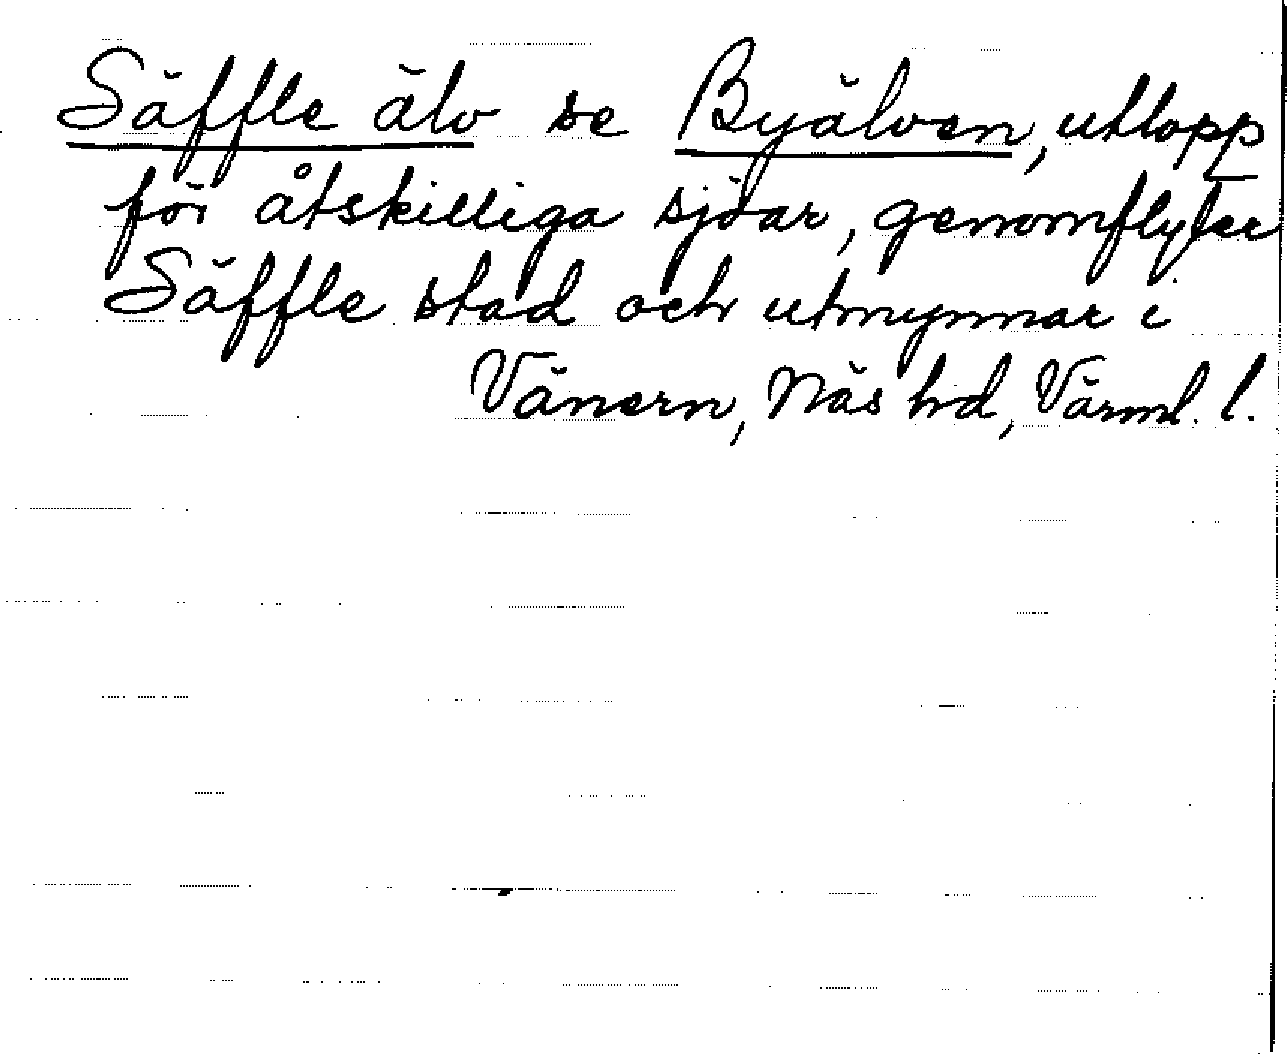 Säffle älv se Byälven, utlopp
för åtskilliga sjöar, genomflyter
Säffle stad och utmynnar i
Vänern, Näs hd, Värml. l.